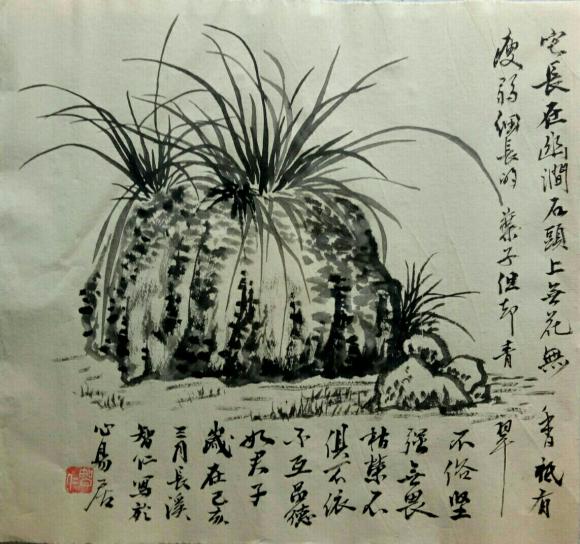 它長在幽澗石頭上無花無香祇有
瘦弱細長的葉子但却青翠
不俗坚
强無畏
枯榮不
俱不依
不互品德
如君子
歲在己亥
三月長溪
智仁寫於
心易居